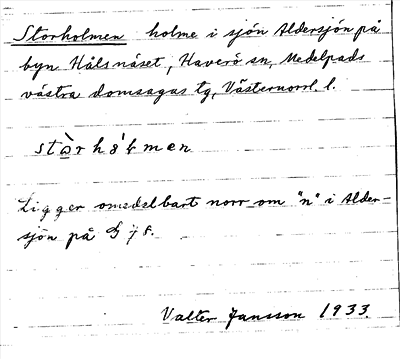 Storholmen holme i sjön Aldersjön på
byn Håls näset, Haverö sn, Medelpads
västra domsagas tg, Västernorrl. l.
Ligger omedelbart norr om "n" i Alder-
sjön på G 78.
Valter Jansson 1933.